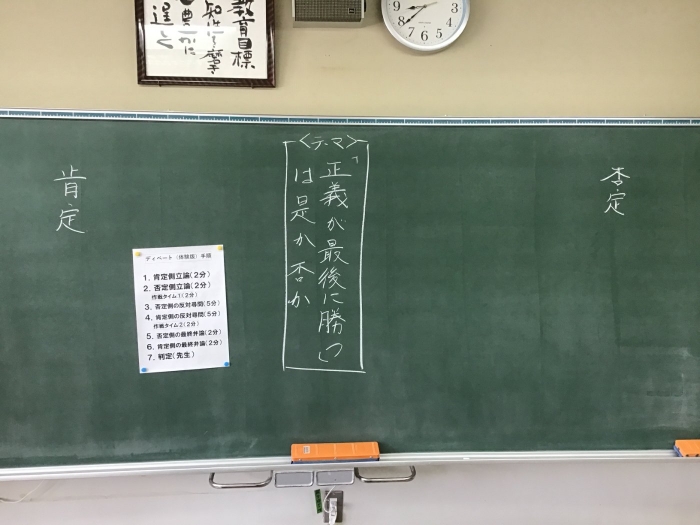 教育目標
<テーマ>
「正義が最後に勝つ」
は是か否か
肯定
否定
ディベート（体験版）手順
1. 肯定側立論(2分)
2. 否定側立論(2分)
作戦タイム1(2分)
3. 否定側の反対尋問(5分)
4. 肯定側の反対尋問(5分)
作戦タイム2(2分)
5. 否定側の最終弁論(2分)
6. 肯定側の最終弁論(2分)
7. 判定(先生)
9
8
7
6
5
4
3